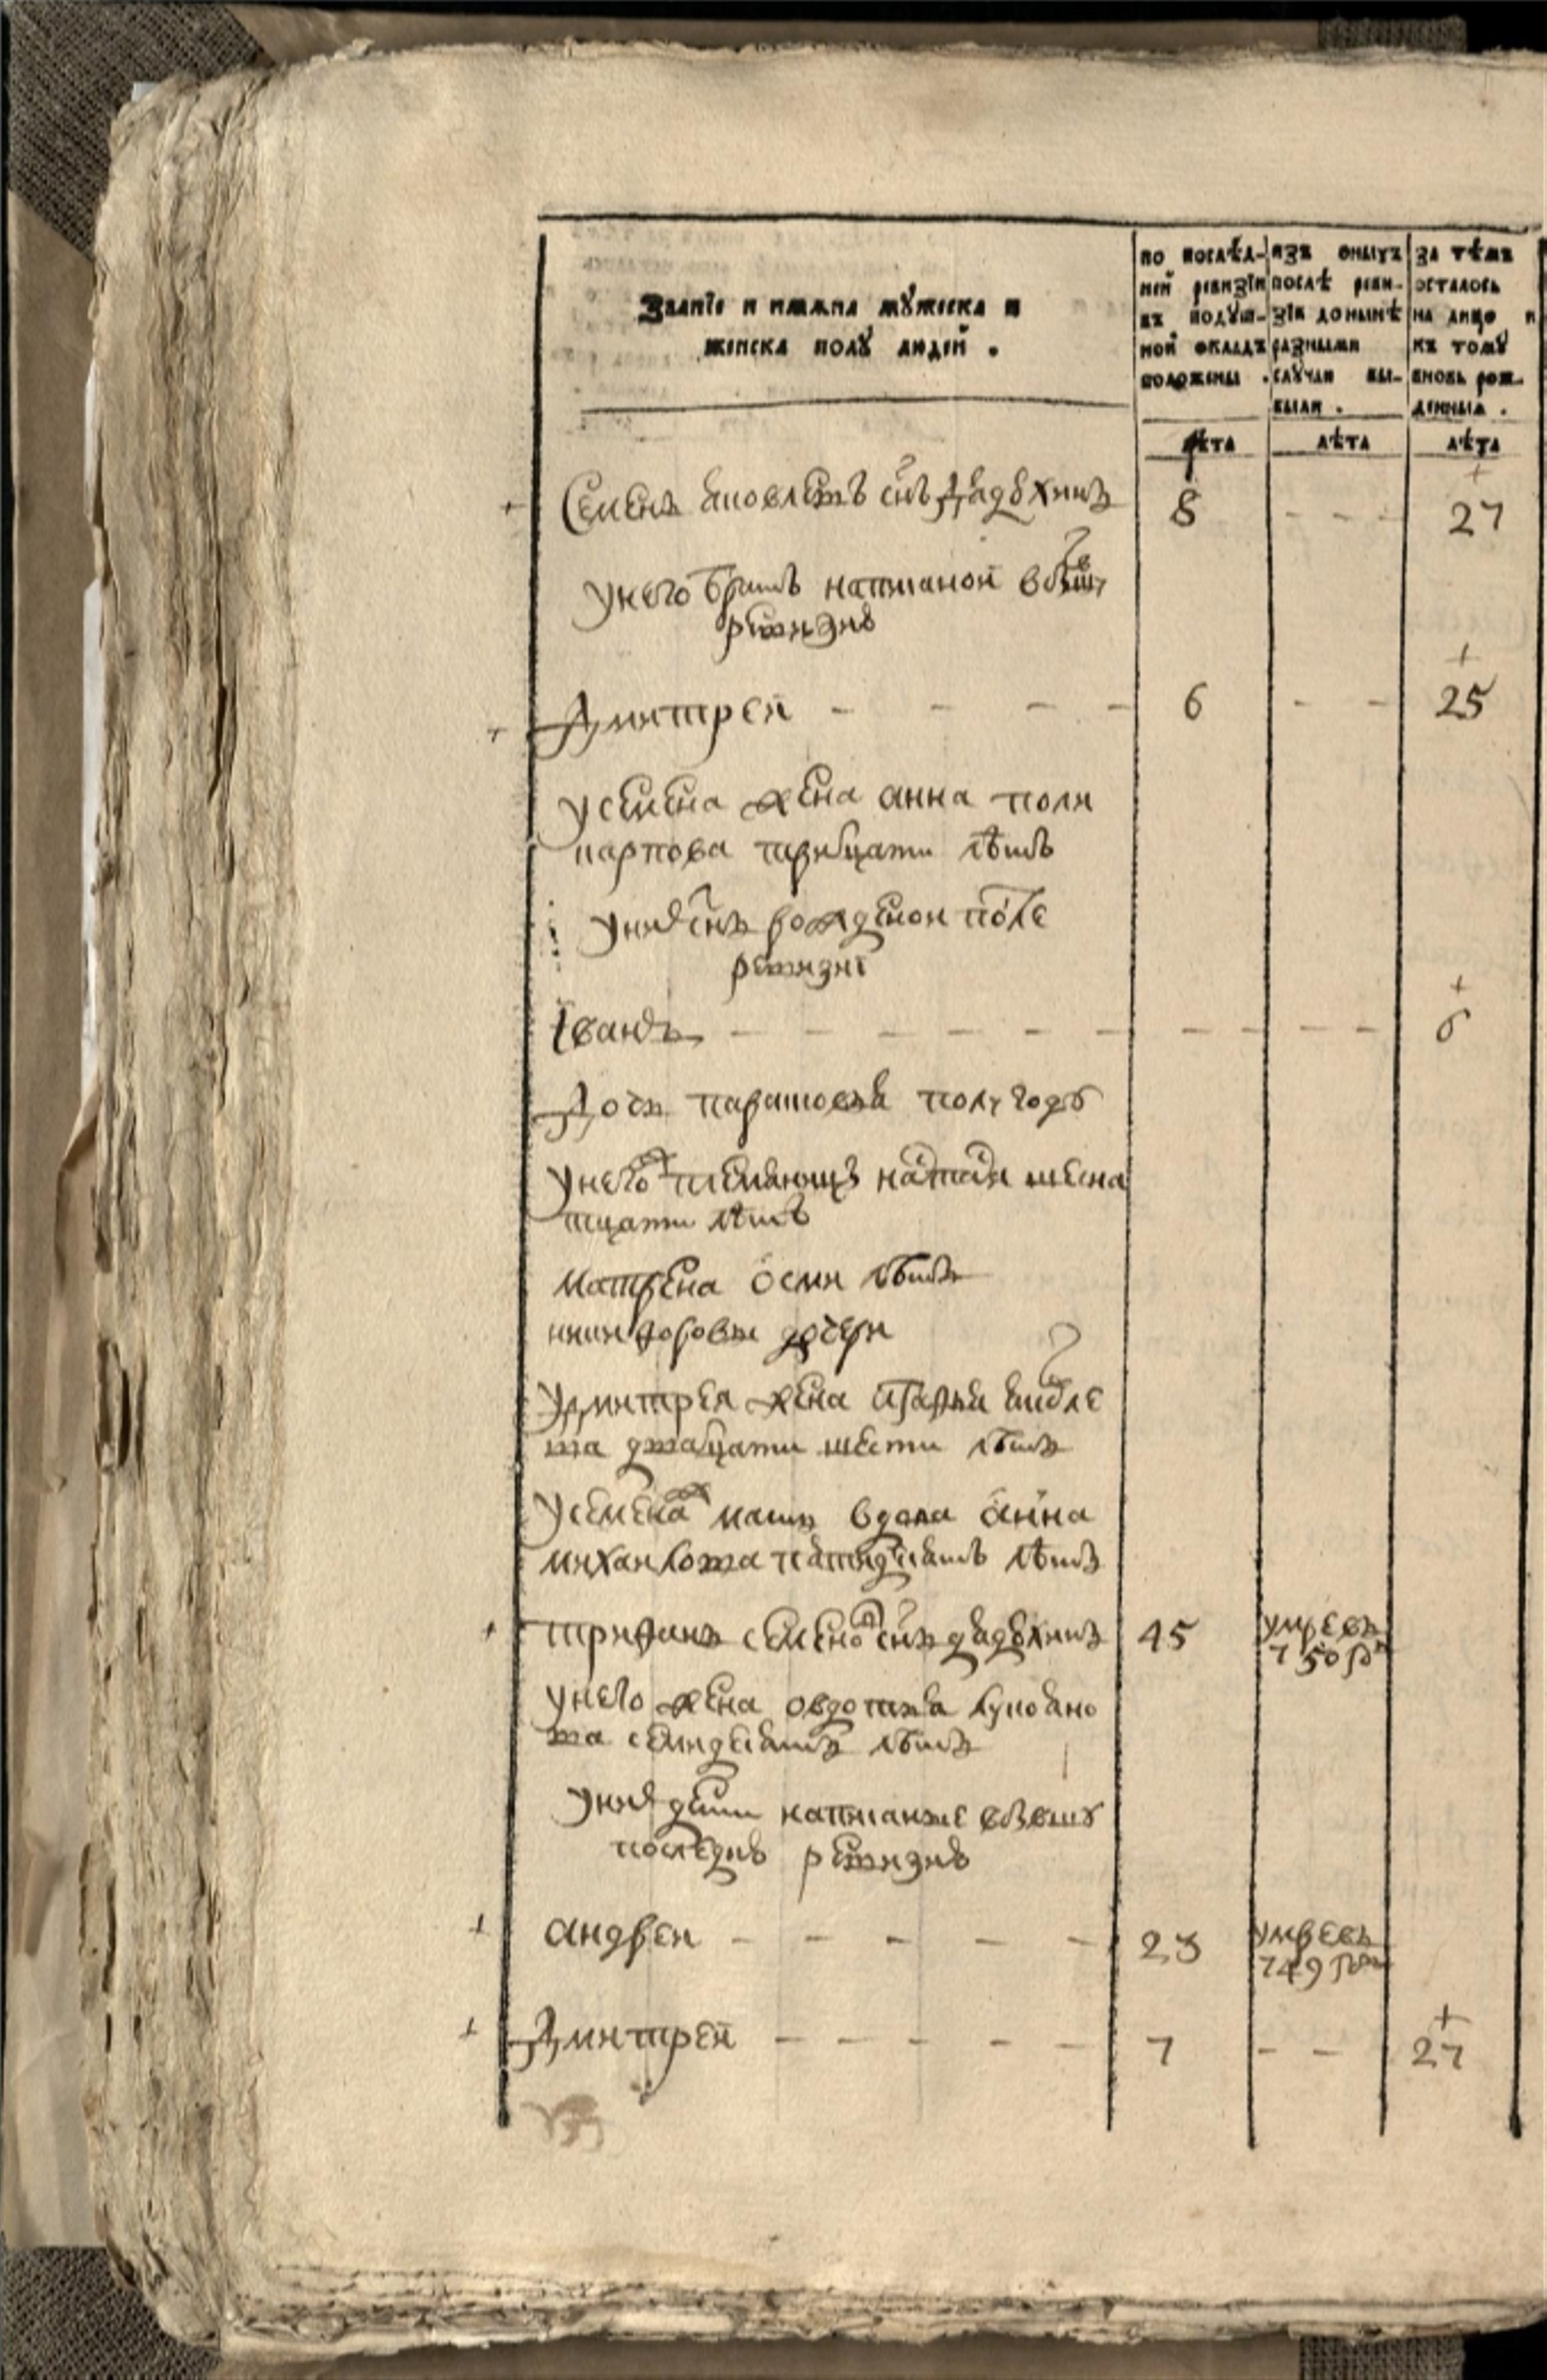 Званїе и имѧна мꙋжеска и
женска полꙋ людей .
по послѣд-
ней ревизїи
въ подꙋш-
ной окладъ
положены .
изъ оныхъ
послѣ реви-
зїи донынѣ
разными
слꙋчаи вы-
были .
за тѣмъ
осталось
на лицо и
къ томꙋ
вновь рож-
денныѧ .
лѣта
лѣта
лѣта
Семенъ снъ
8 - - - 27
унего братъ написаной
ревизиъ
Дмитреи - - - - 6 - - 25
усемена жена анна поли
карпова тритцати лѣтъ
унихъ снъ рожденои после
ревизиі
Іванъ - - - - - - - - - - 6
Дочь парасковья полугоду
унего племянницъ шесна
тцати лѣтъ
матрена осми лѣтъ
никифоровы дочери
удмитрея жена
ва дватцати шести лѣтъ
усемена мать вдова анна
михаилова пятидесятъ лѣтъ
трифанъ семеновъ снъ
45 умре въ
750 г
унего жена овдотья лукояно
ва семидесятъ лѣтъ
унихъ дети написаные
последнъ ревизиъ
андреи - - - - - 23 умре въ
749 году
Дмитреи - - - - - 7 - - 27